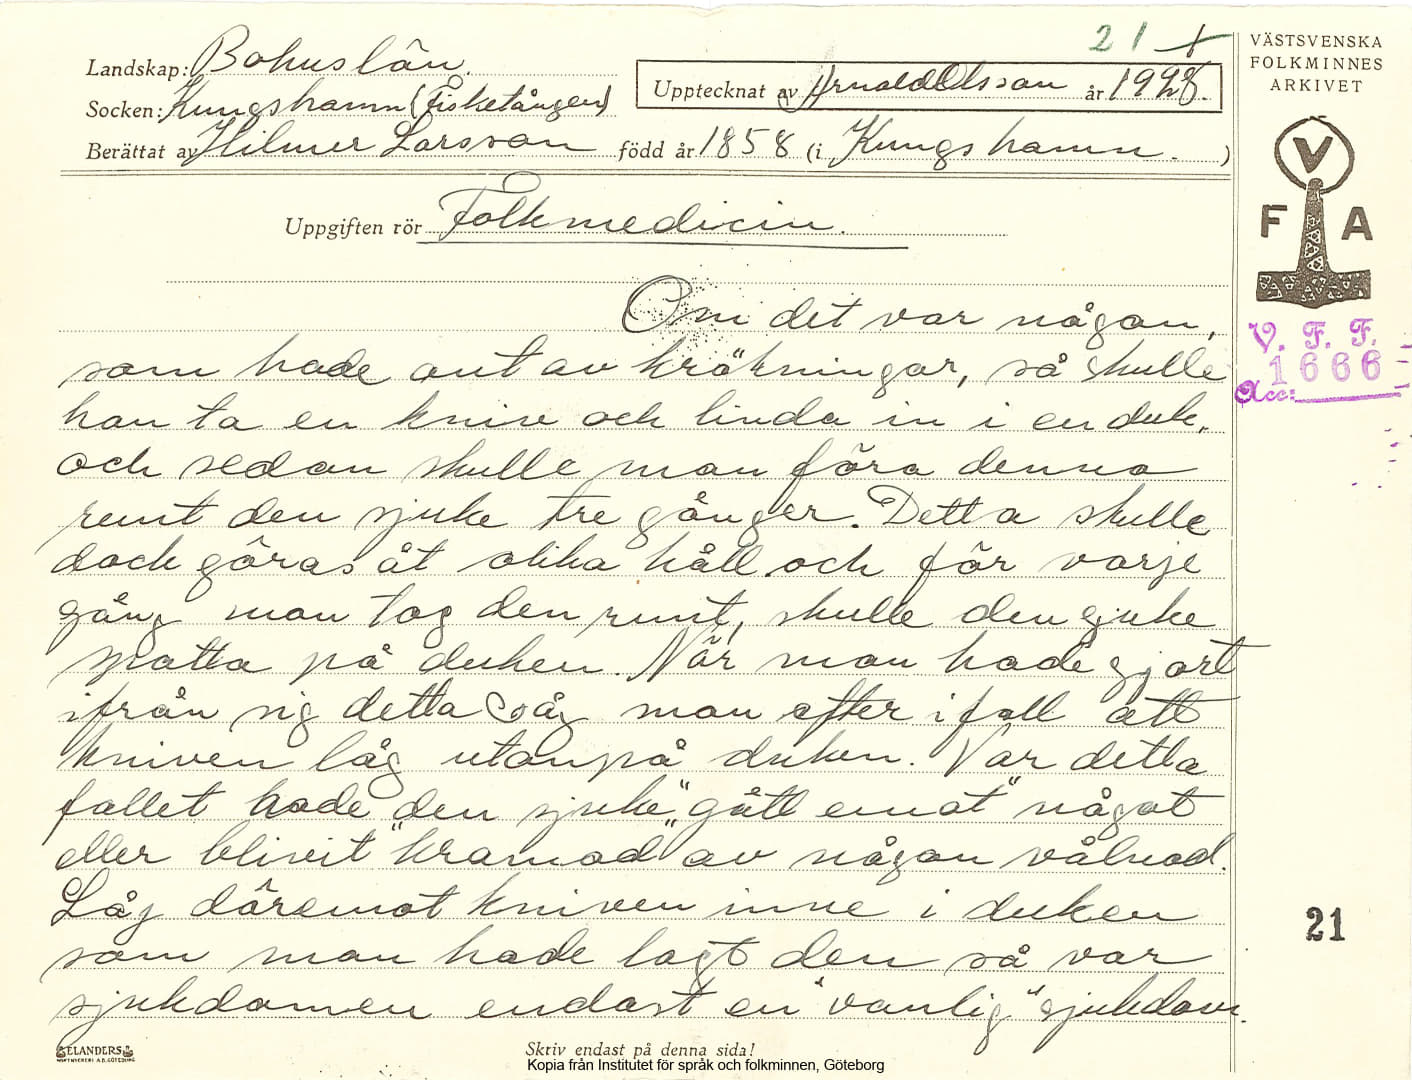 21 +
Landskap: Bohuslän.
Socken: Kungshamn (Fisketången)
Upptecknat av Arnold Olsson år 1928.
Berättat av Hilmer Larsson född år 1858 (i Kungshamn. )
Uppgiften rör Folkmedicin.
Om det var någon,
som hade ont av kräkningar, så skulle
han ta en kniv och linda in i en duk,
och sedan skulle man föra denna
runt den sjuke tre gånger. Detta skulle
dock göras åt olika håll och för varje
gång man tog den runt, skulle den sjuke
spotta på duken. När man hade gjort
ifrån sig detta såg man efter ifall att
kniven låg utanpå duken. Var detta
fallet hade den sjuke "gått emot" något
eller blivit "kramad" av någon vålnad.
Låg däremot kniven inne i duken
som man hade lagt den så var
sjukdomen endast en "vanlig" sjukdom.
Skriv endast på denna sida!
ELANDERS
BOKTRYCKERI A.B. GÖTEBORG
Kopia från Institutet för språk och folkminnen, Göteborg
VÄSTSVENSKA
FOLKMINNES
ARKIVET
V
F A
V. F. F.
1666
Acc:
21